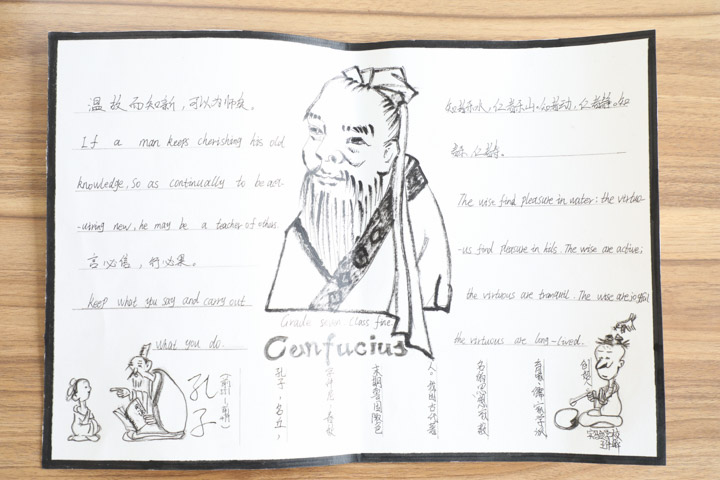 温故而知新，可以为师矣。
If a man keeps cherishing his old
knowledge, so as continually to be acq-
-uiring new, he may be a teacher of others
言必信，行必果。
keep what you say and carry out
what you do.
知者乐水，仁者乐山；知者动，仁者静。知
者乐，仁者寿。
The wise find pleasure in water; the virtuo-
-us find pleasure in hills. The wise are active;
the virtuous are tranquil. The wise are joyful
the virtuous are long-lived.
Grade seven. class five
Confucius
孔子
孔子，名丘，
末期鲁国陬邑
人，我国古代著
名的思想家教
育家，儒家学派
创始
实验学校